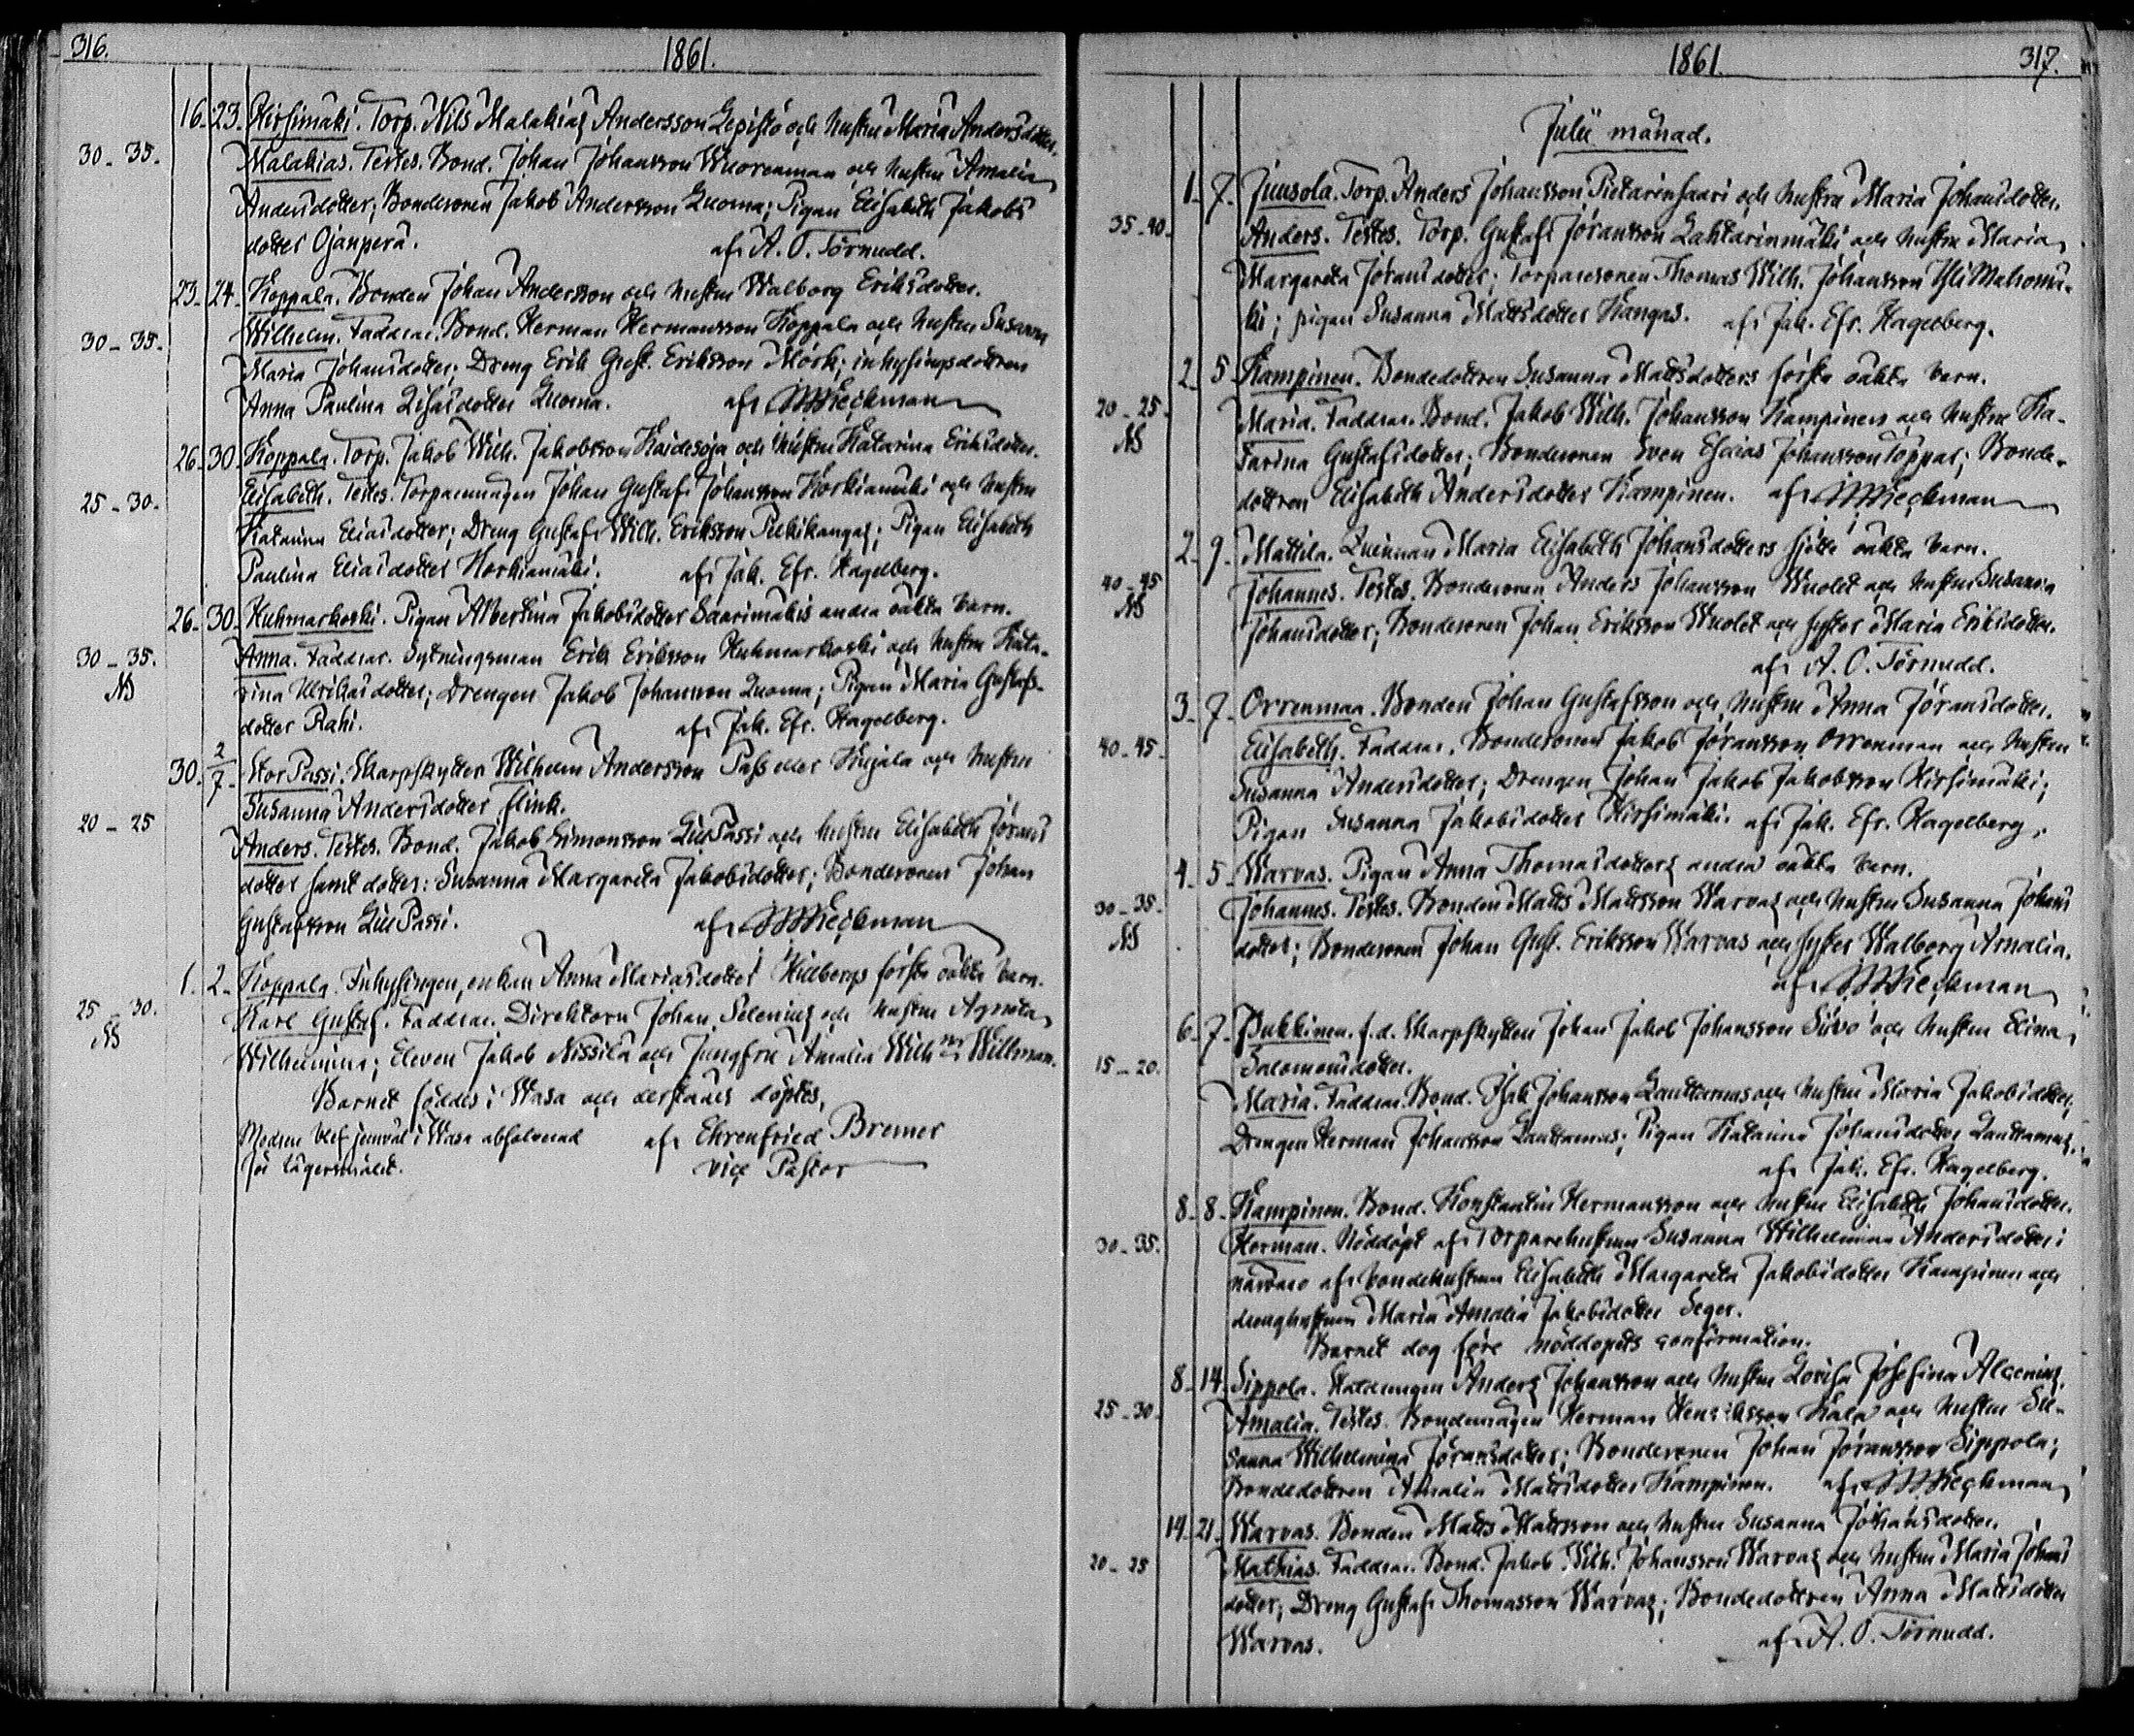 316.
1861.
16. 23. Hirsimäki. Torp. Nils Malakias Andersson Lepistö och hustru Maria Andersdotter.
30-35. Malakias. Testes. Bond. Johan Johansson Wuorenmaa och hustru Amalia
Andersdotter; Bondesonen Jakob Andersson Luoma; Pigan Elisabeth Jakobs
dotter Ojanperä. af A. O. Törnudd.
23. 24. Koppala. Bonden Johan Andersson och hustru Walborg Eriksdotter.
30-35. Wilhelm. Faddrar. Bond. Herman Hermansson Koppala och hustru Susanna
Maria Johansdotter; Dreng Erik Gust. Eriksson Mörk; inhysingsdottren
Anna Paulina Lisasdotter Luoma. af Wieckman
26. 30. Koppala. Torp. Jakob Wilh. Jakobsson Kaidesoja och hustru Katarina Eriksdotter.
25-30. Elisabeth. Testes. Torparemågen Johan Gustaf Johansson Korkiamäki och hustru
Katarina Eliasdotter; Dreng Gustaf Wilh. Eriksson Pelkikangas; Pigan Elisabeth
Paulina Eliasdotter Korkiamäki. af Jak. Efr. Hagelberg.
26. 30. Kuhmarkoski. Pigan Albertina Jakobsdotter Saarimäkis andra oäkta barn.
30-35. Anna. Faddrar. Sytningsman Erik Eriksson Kuhmarkoski och hustru Kata-
NB rina Ulrikasdotter; Drengen Jakob Johansson Luoma; Pigan Maria Gustafs-
dotter Rahi. af Jak. Efr. Hagelberg.
30. 2/7. Stor Passi. Skarpskytten Wilhelm Andersson Pass eller Kujala och hustru
Susanna Andersdotter Flink.
20-25 Anders. Testes. Bond. Jakob Simonsson LillPassi och hustru Elisabeth Jörans
dotter samt dotter: Susanna Margareta Jakobsdotter; Bondesonen Johan
Gustafsson LillPassi. af Wieckman
1. 2. Koppala. Inhysingen, enkan Anna Mariasdotter Hillbergs första oäkta barn.
25-30. Karl Gustaf. Faddrar. Direktorn Johan Selenius och hustru Agneta
NB Wilhelmina; Eleven Jakob Nissilä och Jungfru Amalia Wilhna Willman.
Barnet föddes i Wasa och derstädes döptes,
Modren blef jemväl i Wasa absolverad af Ehrenfried Bremer
för lägersmålet. vice Pastor
1861.
317.
Julii månad.
1. 7. Juusola. Torp. Anders Johansson Pietarinhaari och hustru Maria Johansdotter.
35-40. Anders. Testes. Torp. Gustaf Jöransson Lahtarinmäki och hustru Maria
Margareta Jöransdotter; Torparesonen Thomas Wilh. Johansson
ki; pigan Susanna Mattsdotter Kangas. af Jak. Efr. Hagelberg.
2. 5. Kampinen. Bondedottren Susanna Mattsdotters första oäkta barn.
20-25. Maria. Faddrar. Bond. Jakob Wilh. Johansson Kampinen och hustru Ka-
NB tarina Gustafsdotter; Bondesonen Sven Esaias Johansson Töppar; Bonde-
dottren Elisabeth Andersdotter Kampinen. af Wieckman
2. 9. Mattila. Qvinnan Maria Elisabeth Johansdotters sjette oäkta barn.
40-45 Johannes. Testes. Bondesonen Anders Johansson Wuolet och hustru Susanna
NB Johansdotter; Bondesonen Johan Eriksson Wuolet och syster Maria Eriksdotter.
af A. O. Törnudd.
3. 7. Orrenmaa. Bonden Johan Gustafsson och hustru Anna Jöransdotter.
40-45. Elisabeth. Faddrar. Bondesonen Jakob Jöransson Orrenmaa och hustru
Susanna Andersdotter; Drengen Johan Jakob Jakobsson Hirsimäki;
Pigan Susanna Jakobsdotter Hirsimäki. af Jak. Efr. Hagelberg.
4. 5. Warvas. Pigan Anna Thomasdotters andra oäkta barn.
30-35. Johannes. Testes. Bonden Matts Mattsson Warvas och hustru Susanna Johans
NB dotter; Bondesonen Johan Gust. Eriksson Warvas och syster Walborg Amalia.
af Wieckman
6. 7. Pukkinen. f.d. Skarpskytten Johan Jakob Johansson Siivo och hustru Elina
15-20. Salomonsdotter.
Maria. Faddrar. Bond. Isak Johansson Lanttamus och hustru Maria Jakobsdotter,
Drengen Herman Johansson Lanttamus; Pigan Katarina Johansdotter Lanttamus.
af Jak. Efr. Hagelberg.
8. 8. Kampinen. Bond. Konstantin Hermansson och hustru Elisabeth Johansdotter.
30-35. Herman. Nöddöpt af Torparehustrun Susanna Wilhelmina Andersdotter i
närvaro af bondehustrun Elisabeth Margareta Jakobsdotter Kampinen och
drenghustrun Maria Amalia Jakobsdotter Seger.
Barnet dog före nöddopets confirmation.
8. 14. Sippola. Haldningen Anders Johansson och hustru Lovisa Josefina Alcenius.
25-30. Amalia. Testes. Bondemågen Herman Henriksson Kala och hustru Su-
sanna Wilhelmina Jöransdotter; Bondesonen Johan Jöransson Sippola;
Bondedottren Amalia Mattsdotter Kampinen. af Wieckman
14. 21. Warvas. Bonden Matts Mattsson och hustru Susanna Johansdotter.
20-25 Mathias. Faddrar. Bond. Jakob Wilh. Johansson Warvas och hustru Maria Johans
dotter; Dreng Gustaf Thomasson Warvas; Bondedottren Anna Mattsdotter
Warvas. af A. O. Törnudd.